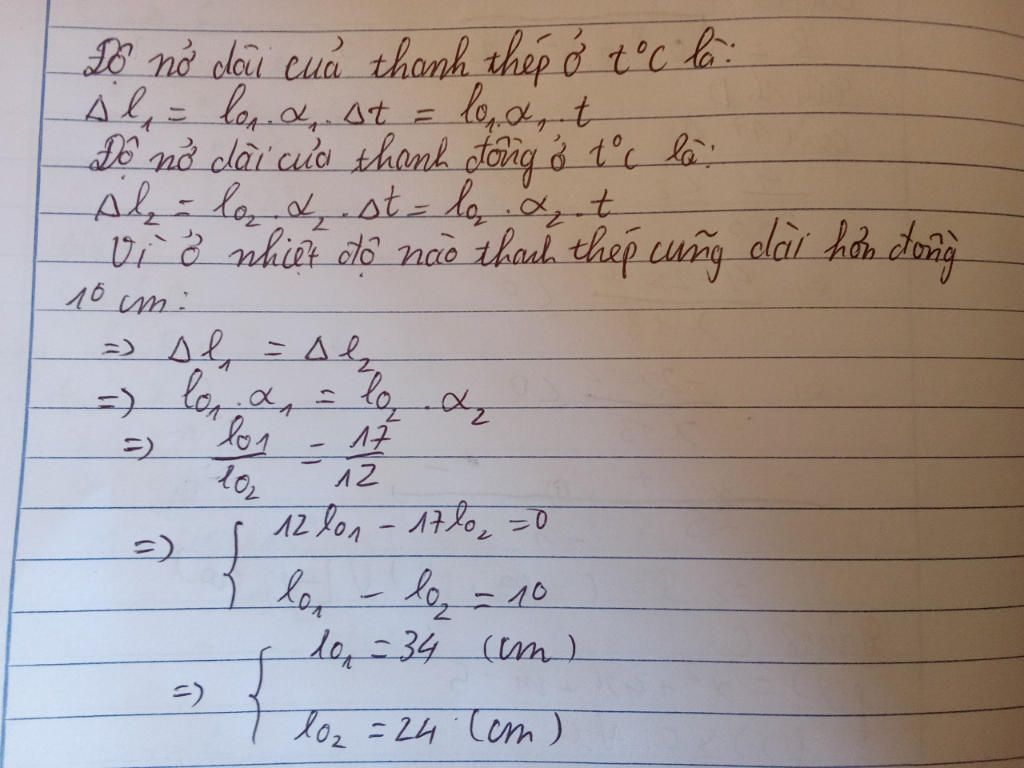 Độ nở dài của thanh thép ở t°C là:
Δl₁ = lo₁.α₁.Δt = lo₁.α₁.t
Độ nở dài của thanh đồng ở t°C là:
Δl₂ = lo₂.α₂.Δt = lo₂.α₂.t
Vì ở nhiệt độ nào thanh thép cũng dài hơn đồng
10 cm:
=> Δl₁ = Δl₂
=> lo₁.α₁ = lo₂.α₂
=> lo1/lo₂ = 17/12
=> { 12lo₁ - 17lo₂ = 0
lo₁ - lo₂ = 10
=> { lo₁ = 34 (cm)
lo₂ = 24 (cm)